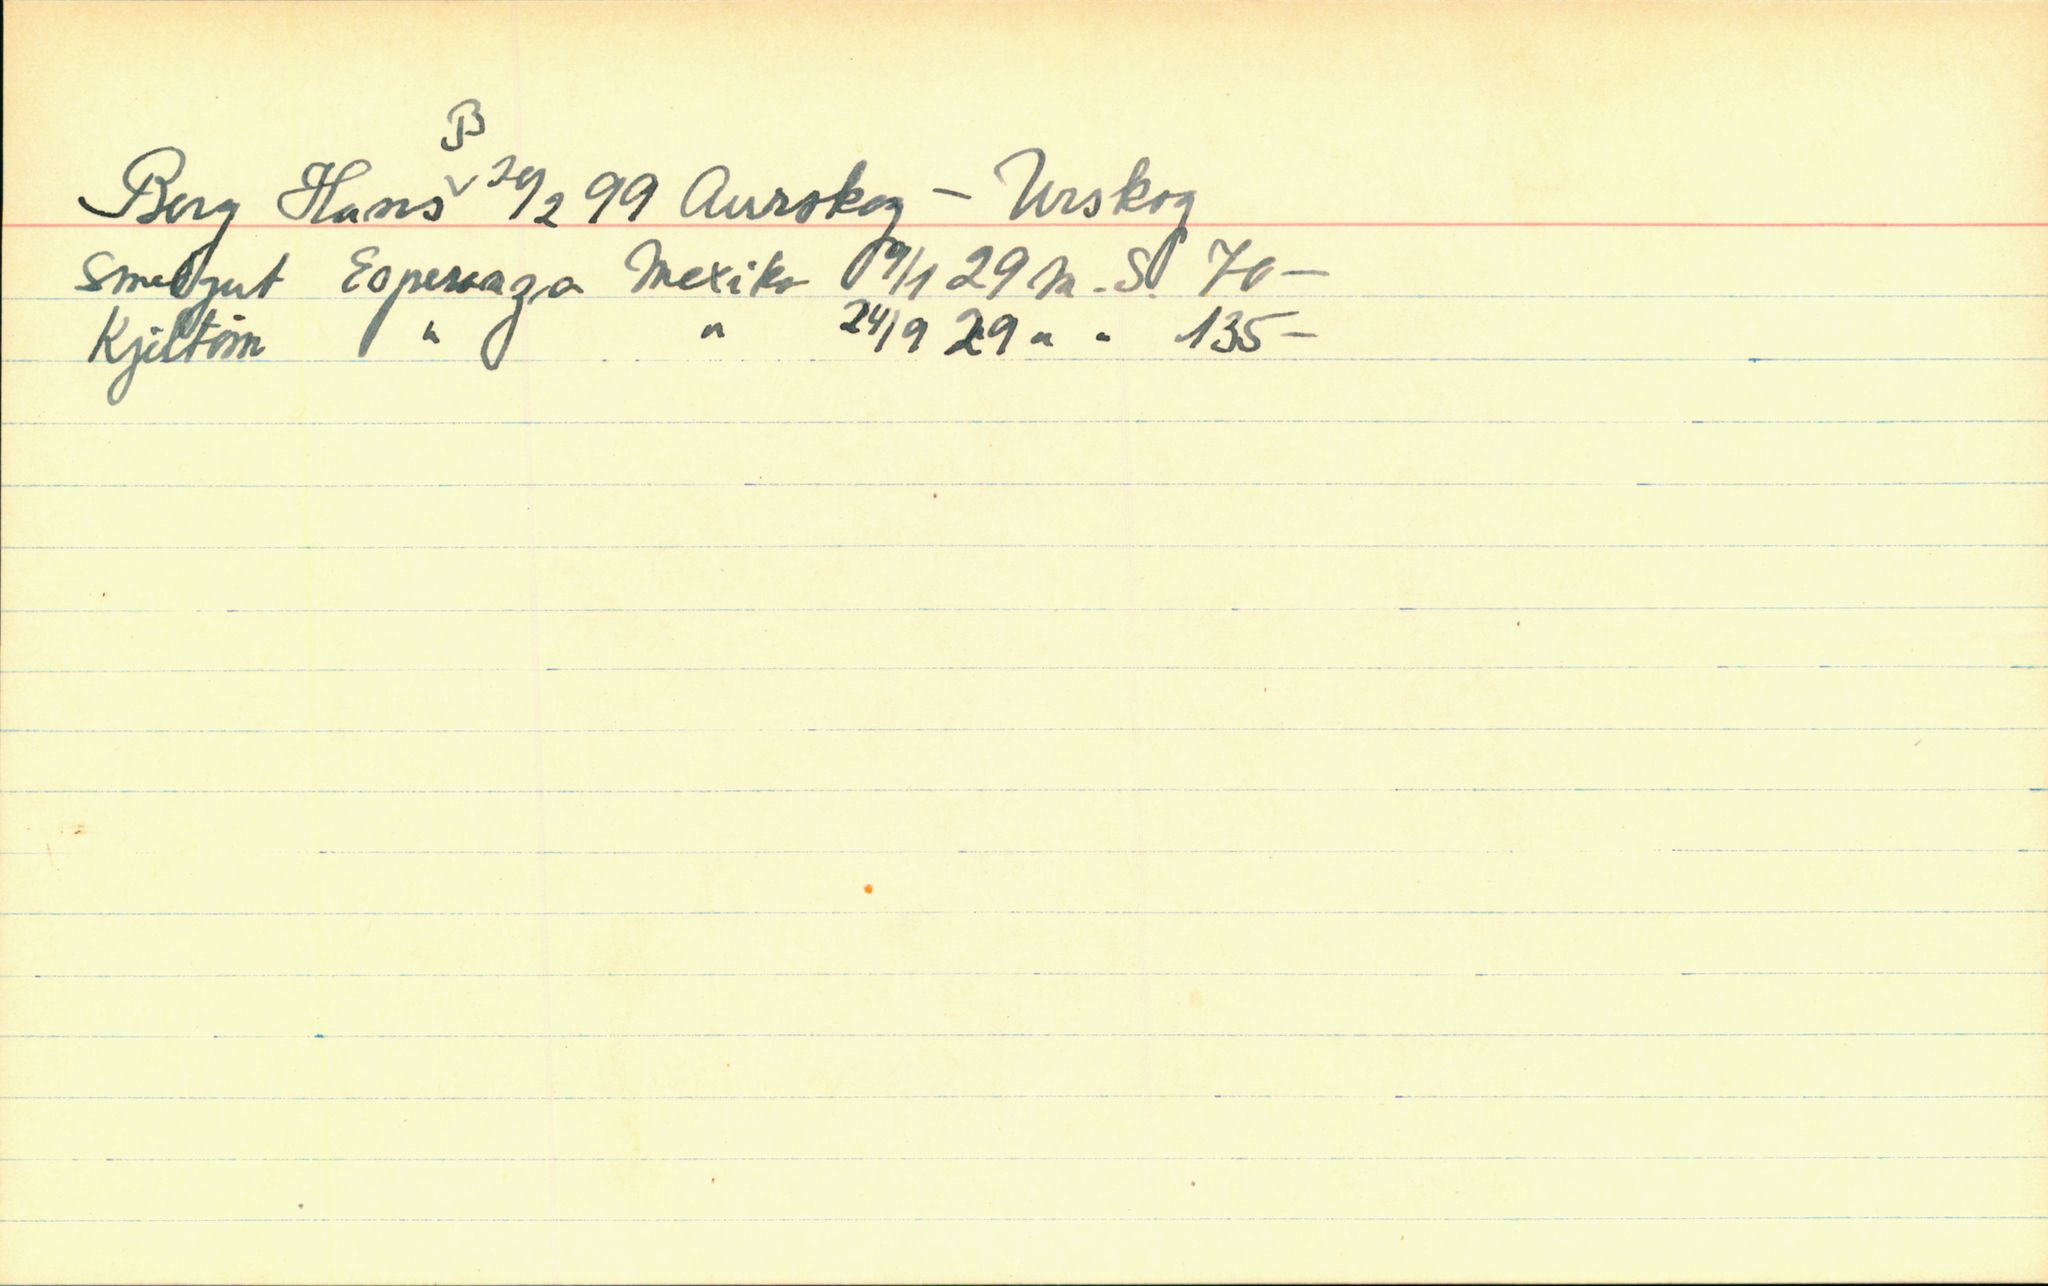 B
Berg Hans v 20/2 99 Aurskog - Urskog
Smelgut Esperanza Mexiko 9/1 29 M. S. 70 -
Kjeltöm " " 24/9 29 " " 135 -